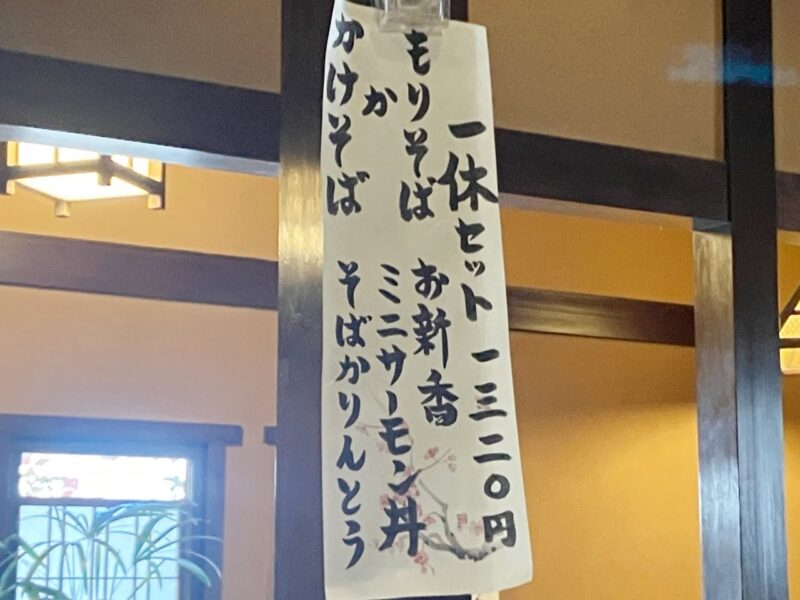 一休セット 一三二〇円
もりそば
か
かけそば
お新香
ミニサーモン丼
そばかりんとう